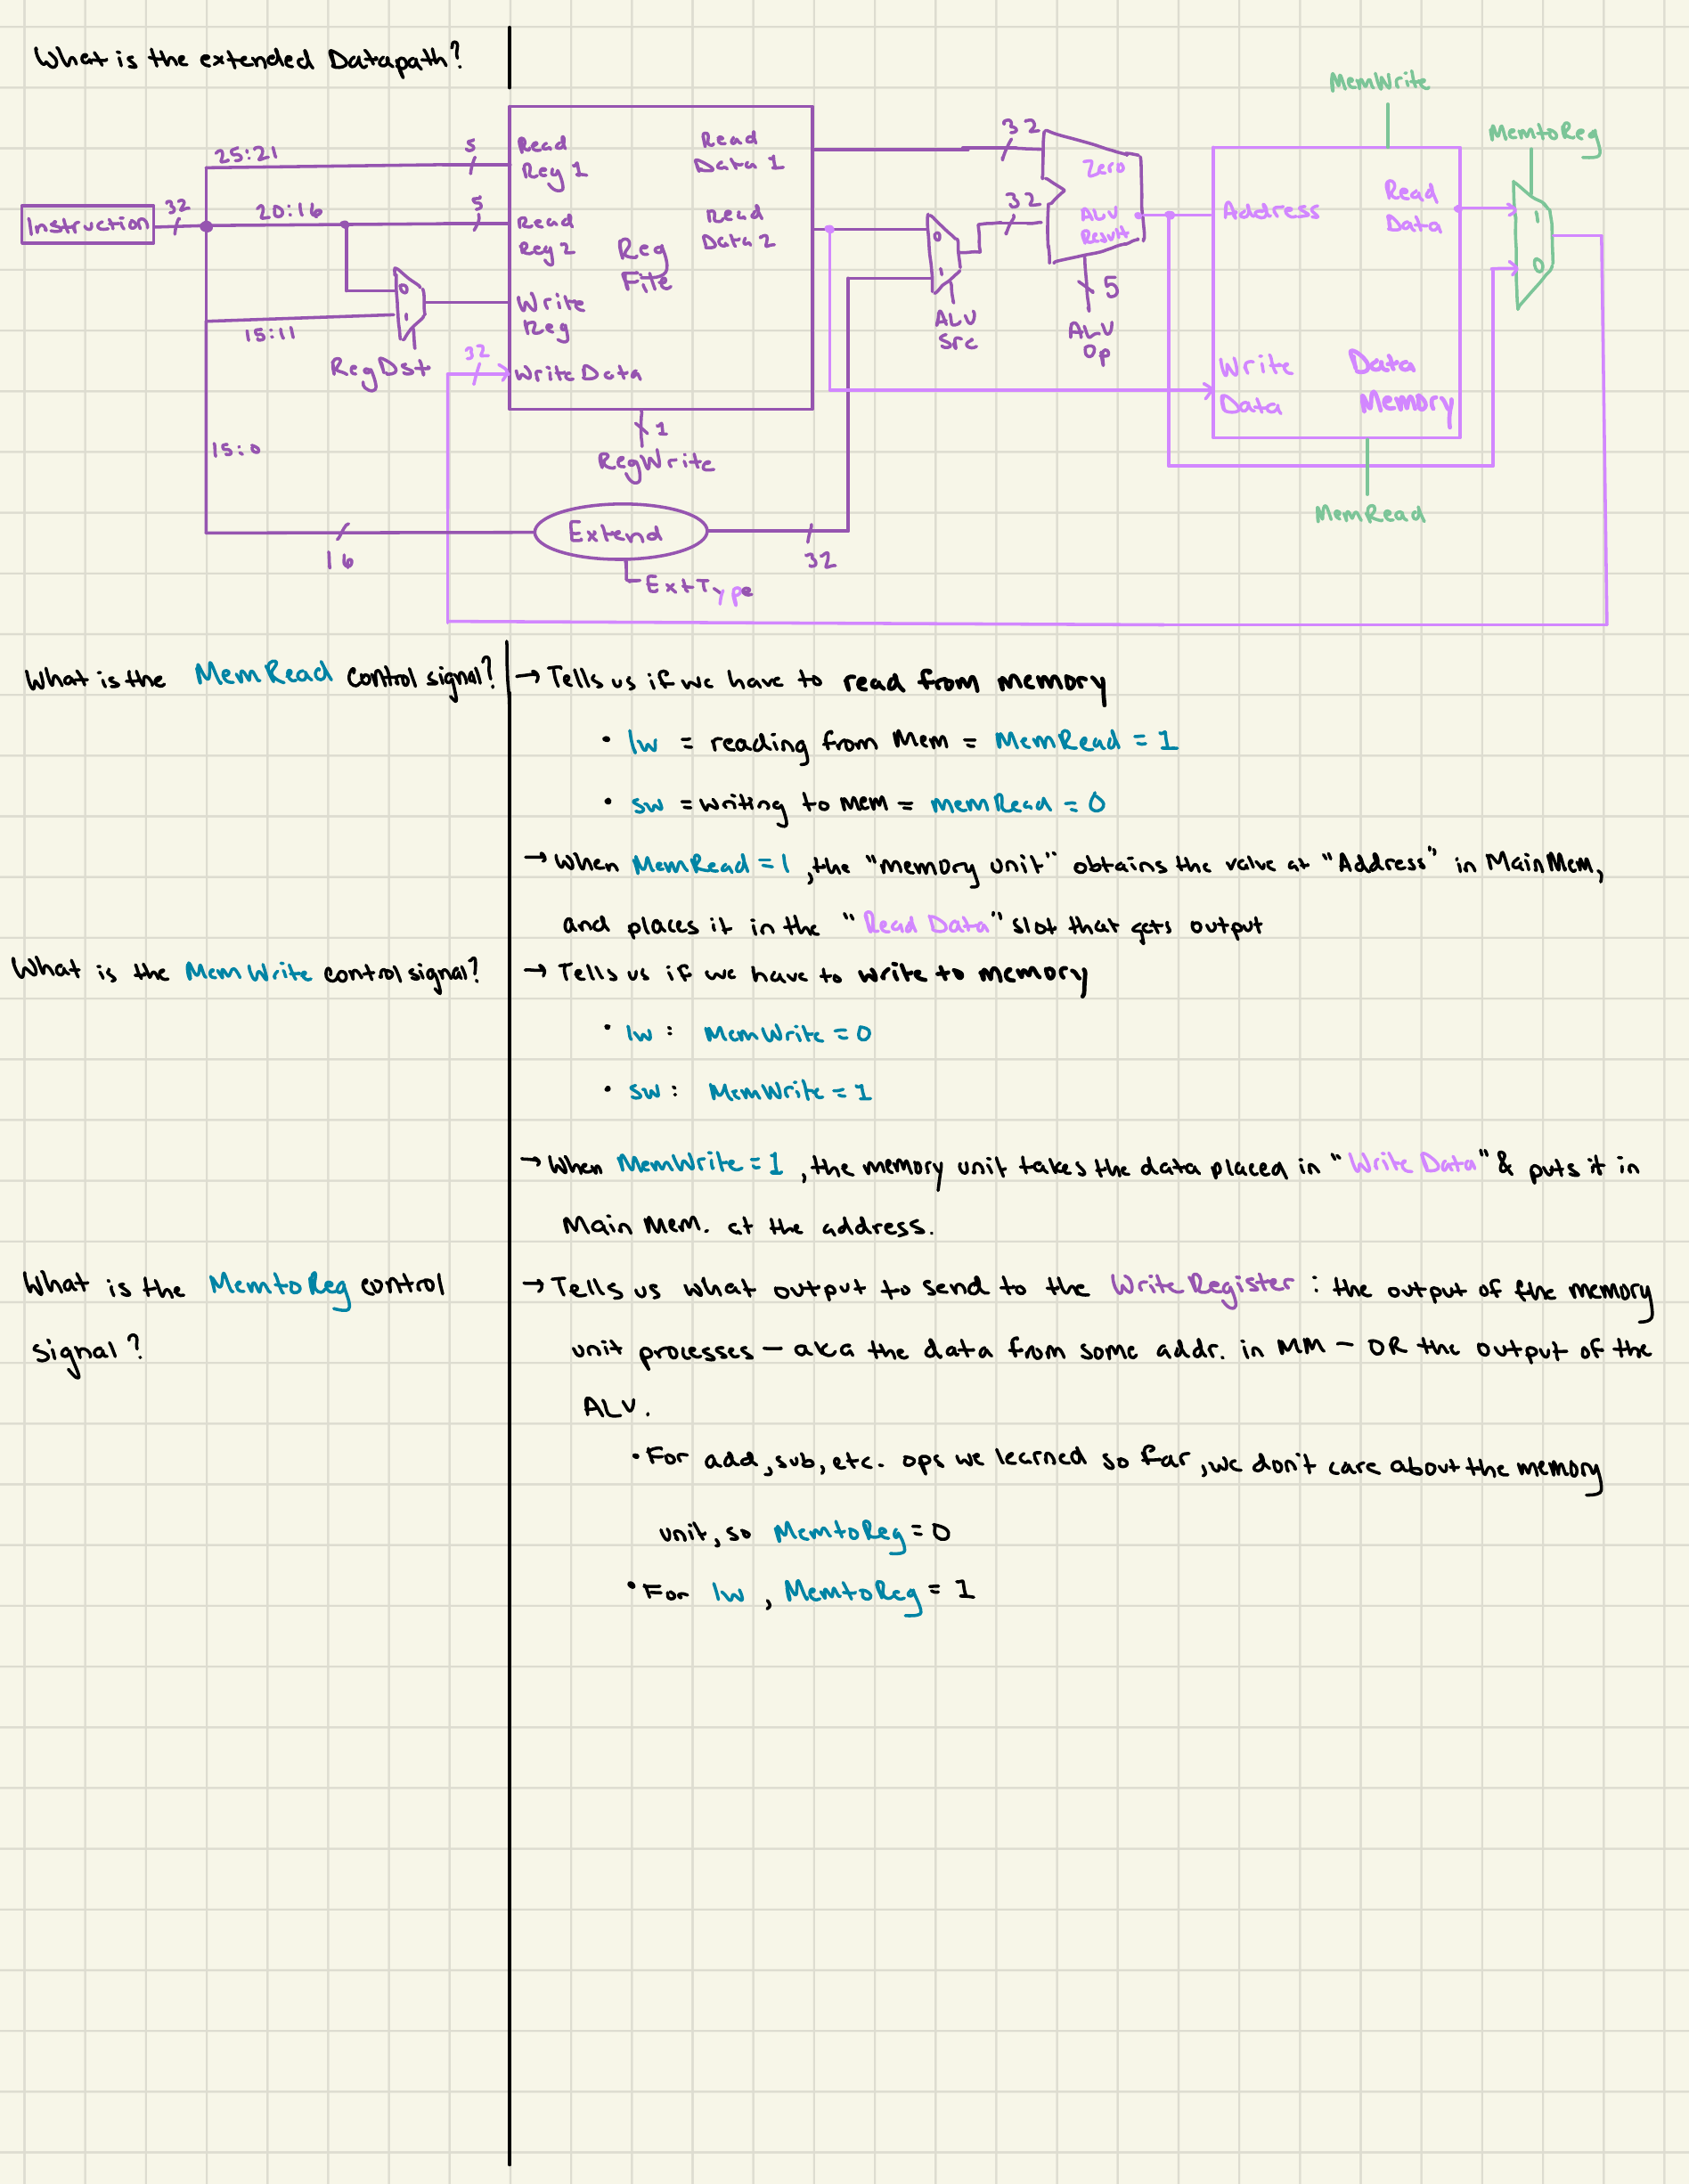 What is the extended Datapath?
MemWrite
MemtoReg
Instruction
32
25:21
5
20:16
5
15:11
RegDst
32
15:0
16
Read
Reg 1
Read
Reg 2
Write
Reg
Write Data
Reg
File
Read
Data 1
Read
Data 2
1
RegWrite
Extend
ExtType
32
0
1
0
1
ALU
Src
32
32
Zero
ALU
Result
5
ALU
Op
Address
Read
Data
Write
Data
Data
Memory
MemRead
1
0
What is the MemRead control signal?
→ Tells us if we have to read from memory
• lw = reading from Mem = MemRead = 1
• sw = writing to mem = memRead = 0
→ When MemRead = 1, the "memory unit" obtains the value at "Address" in Main Mem,
and places it in the "Read Data" slot that gets output
What is the MemWrite control signal?
→ Tells us if we have to write to memory
• lw: MemWrite = 0
• sw: MemWrite = 1
→ When MemWrite = 1, the memory unit takes the data placed in "Write Data" & puts it in
Main Mem. at the address.
What is the MemtoReg control
signal?
→ Tells us what output to send to the Write Register: the output of the memory
unit processes — aka the data from some addr. in MM — OR the output of the
ALU.
• For add, sub, etc. ops we learned so far, we don't care about the memory
unit, so MemtoReg = 0
• For lw, MemtoReg = 1